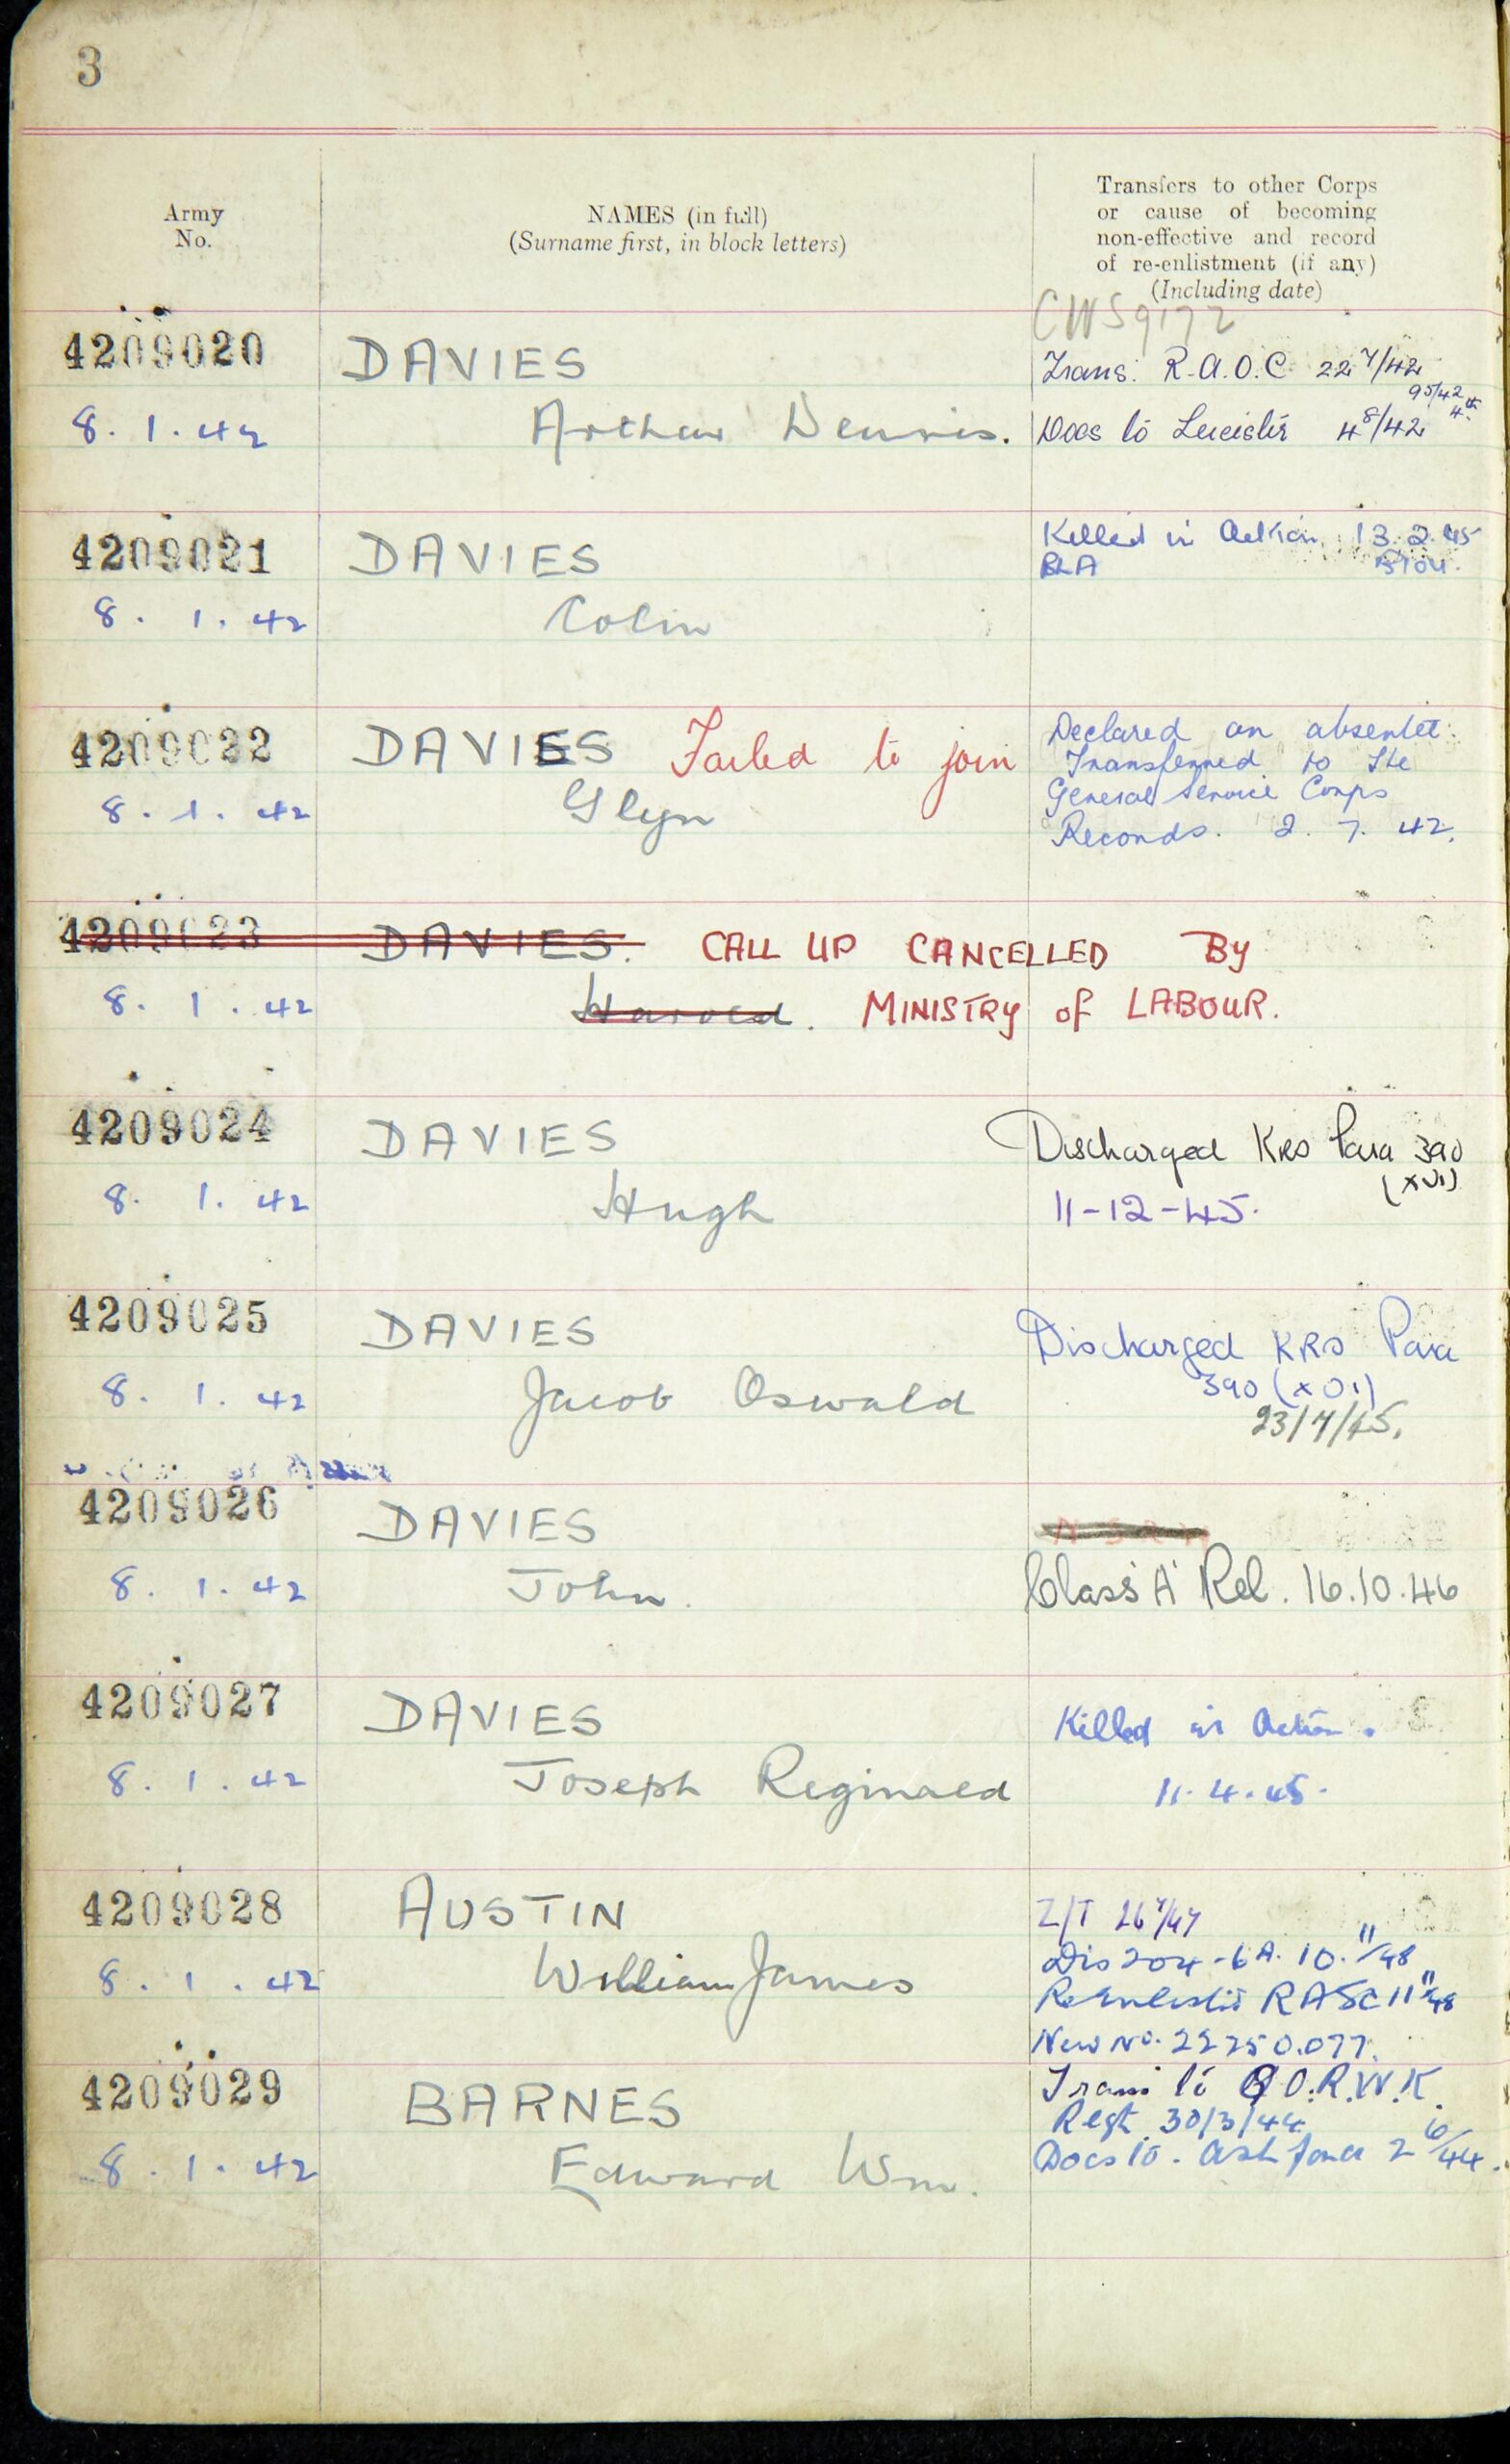 3
Army
No.
NAMES (in full)
(Surname first, in block letters)
Transfers to other Corps
or cause of becoming
non-effective and record
of re-enlistment (if any)
(Including date)
CWS9172
4209020
DAVIES
Trans. R.A.O.C. 22 7/42
95/42
4th
8. 1. 42
Arthur Dennis.
Docs to Leicester 4 8/42
4209021
DAVIES
Killed in Action 13.2.45
BLA
8. 1. 42
Colin
4209022
DAVIES Failed to join
Declared an absentee.
Transferred to the
8. 1. 42
Glyn
General Service Corps
Records. 2. 7. 42.
4209023
DAVIES. CALL UP CANCELLED By
8. 1. 42
Harold. MINISTRY of LABOUR.
4209024
DAVIES
Discharged KRs Para 390
(XVI)
8. 1. 42
Hugh
11-12-45.
4209025
DAVIES
Discharged KRs Para
8. 1. 42
Jacob Oswald
390 (XVI)
23/7/45.
4209026
DAVIES
8. 1. 42
John.
Class 'A' Rel. 16.10.46
4209027
DAVIES
Killed in Action.
8. 1. 42
Joseph Reginald
11.4.45.
4209028
AUSTIN
Z/T 26 7/47
8. 1. 42
William James
Dis 204-6A. 10. 11/48
Reenlisted RASC 11 11/48
New No. 22250.077.
4209029
BARNES
Trans to Q.O.R.W.K.
Regt 30/3/44
8. 1. 42
Edward Wm.
Docs to. Ashford 2 6/44.